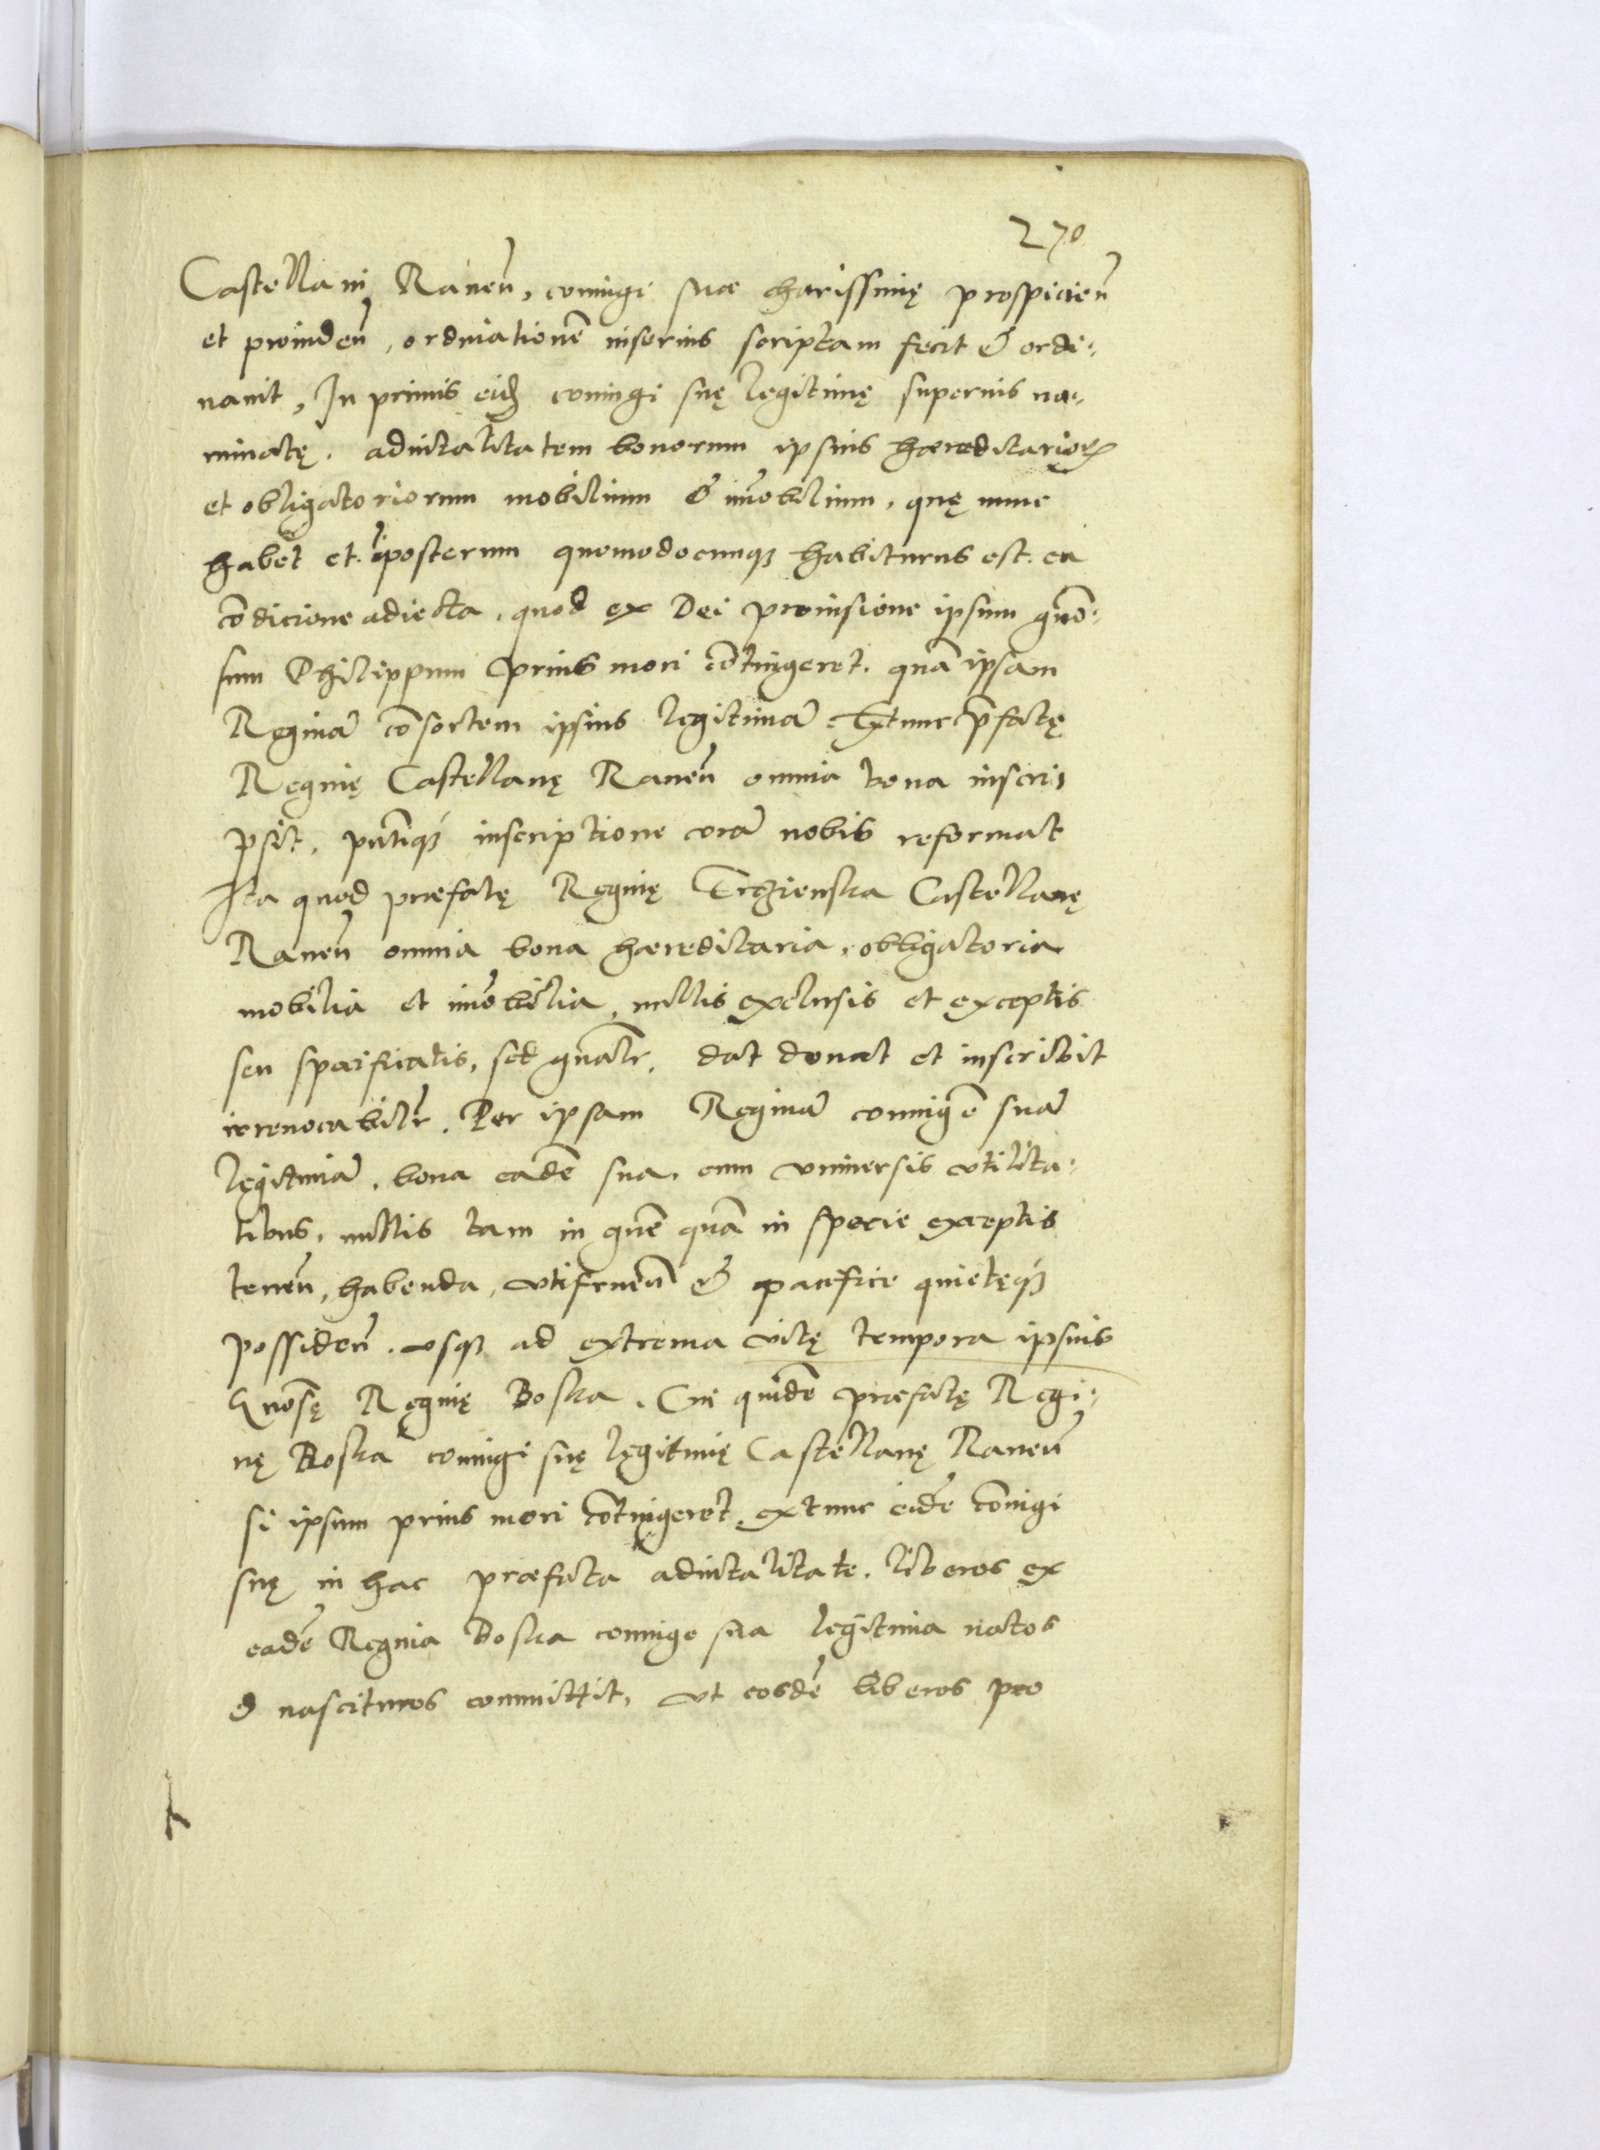 270
Castellani Raneñ, coniugi suæ charissimę prospicieñ
et prouideñ, ordinationē inferius scriptam fecit & ordi-
nauit, In primis eidē coniugi suę legitimę superius no-
minatę, aduitalitatem bonorum ipsius hæreditarioꝝ
et obligatoriorum mobilium & im̄obilium, quę nunc
habet et īposterum quomodocunqꝫ habiturus est. ea
cōdicione adiecta, quod ex Dei prouisione ipsum gnō-
sum Philippum prius mori cōtingeret, quā ipsam
Reginā cōsortem ipsius legitimā. Extunc p̄fatę
Reginę Castellanę Raneñ omnia bona inscri
psit, pn̄tiqꝫ inscriptione corā nobis reformat
Ita quod præfatę Reginę Trzienska Castellanę
Raneñ omnia bona hæreditaria, obligatoria
mobilia et im̄obilia, nullis exclusis et exceptis
seu specificatis, sed gn̄alr̄, dat donat et inscribit
irreuocabilr̄. Per ipsam Reginā coniugē suā
legitimā, bona eadē sua, cum vniuersis vtilita-
tibus, nullis tam in gn̄e quā in specie exceptis
teneñ, habenda, vtifrueñ & pacifice quietęqꝫ
possideñ, vsqꝫ ad extrema vitę tempora ipsius
Gnōsę Reginę Boska. Cui quidē præfatę Regi-
nę Boska coniugi suę legitimę Castellanę Raneñ
si ipsum prius mori cōtingeret, extunc eidē cōiugi
suę in hac præfata aduitalitate, liberos ex
eadē Regina Boska coniuge sua legitima natos
& nascituros committit, vt eosdē liberos pro